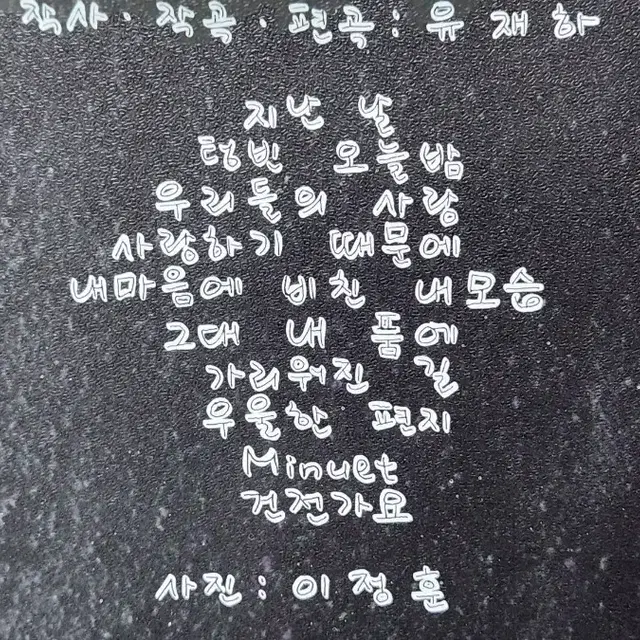 작사·작곡·편곡: 유재하
지난 날
텅빈 오늘밤
우리들의 사랑
사랑하기 때문에
내마음에 비친 내모습
그대 내 품에
가리워진 길
우울한 편지
Minuet
건전가요
사진: 이정훈